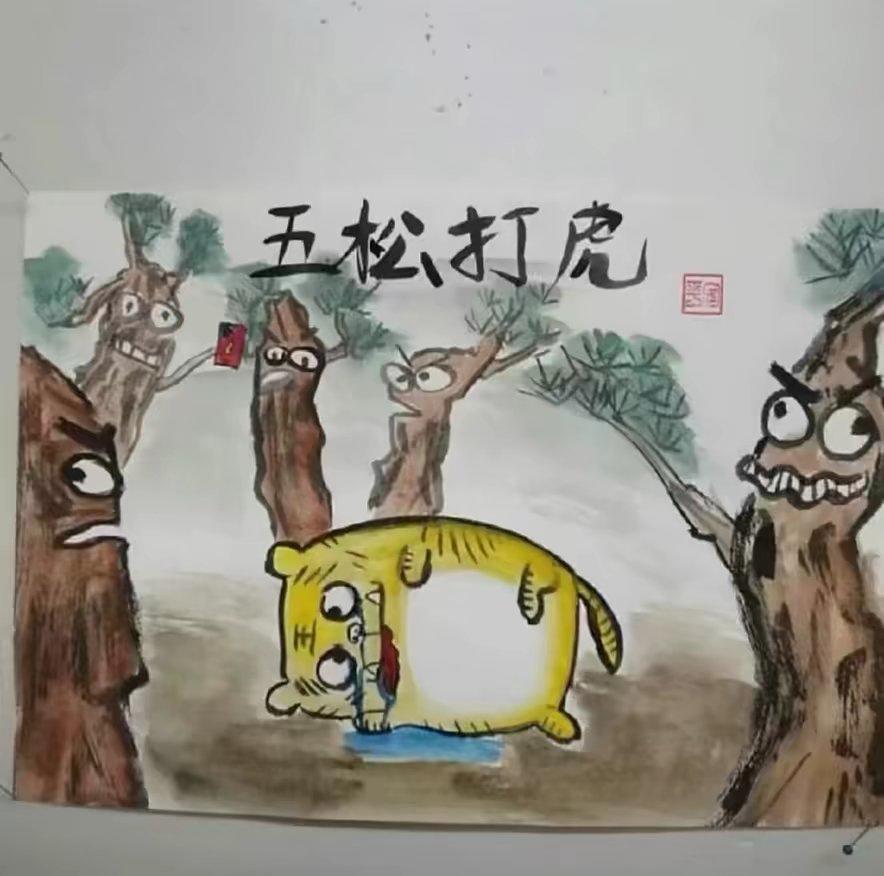 五松打虎
王